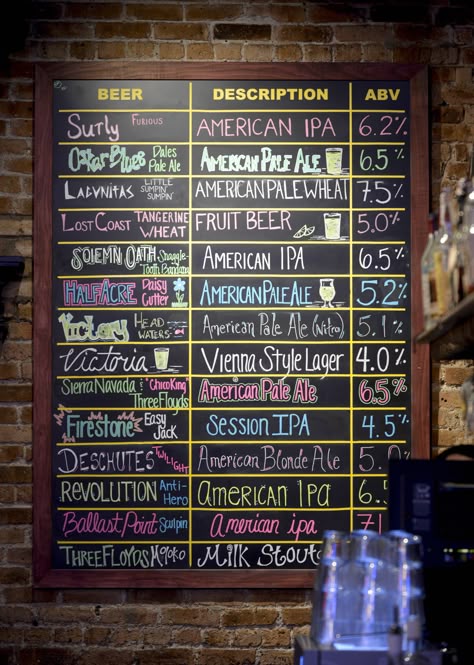 BEER DESCRIPTION ABV
Surly FURIOUS AMERICAN IPA 6.2%
Oskar Blues Dales Pale Ale AMERICAN PALE ALE 6.5%
LAGUNITAS LITTLE SUMPIN' SUMPIN' AMERICAN PALE WHEAT 7.5%
LOST COAST TANGERINE WHEAT FRUIT BEER 5.0%
SOLEMN OATH Snaggle-Tooth Bandana AMERICAN IPA 6.5%
HALF ACRE Daisy Cutter AMERICAN PALE ALE 5.2%
Victory HEADWATERS American Pale Ale (Nitro) 5.1%
Victoria Vienna Style Lager 4.0%
Sierra Nevada "Chico King" Three Floyds American Pale Ale 6.5%
Firestone Easy Jack Session IPA 4.5%
DESCHUTES TWILIGHT American Blonde Ale 5.0
REVOLUTION Anti-Hero American IPA 6.5
Ballast Point Sculpin American ipa 7.
THREE FLOYDS Milk Stout